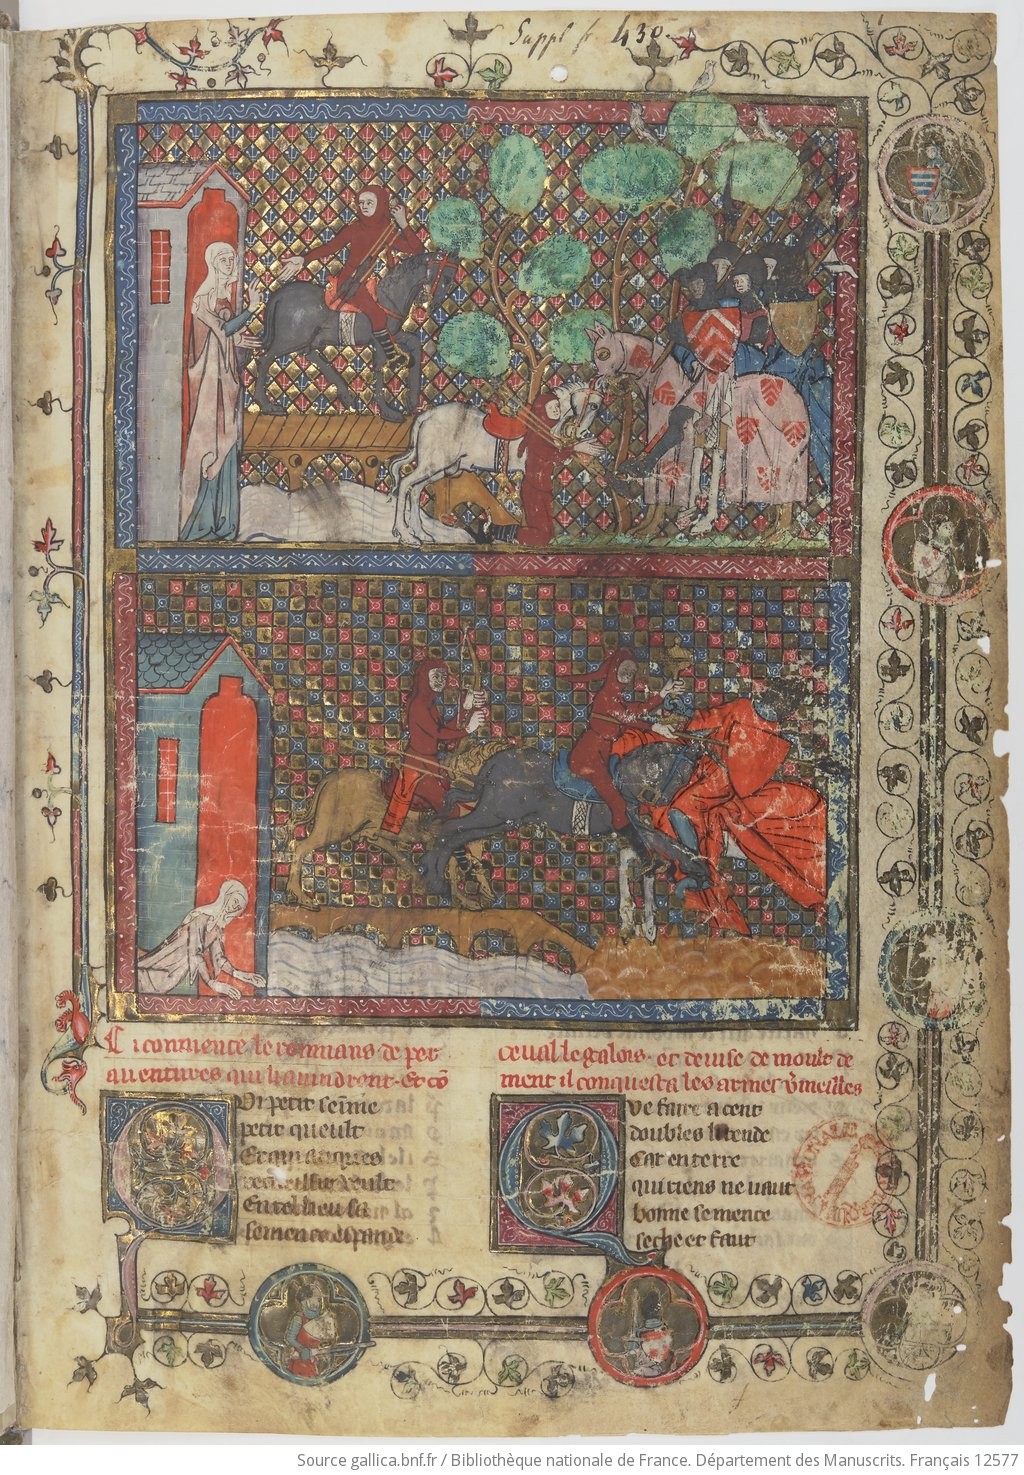 Suppl fr 430
Ci commence le rommans de per
ceual le galois. et deuise de moult de
auentures qui li auindrent. Et cō
ment il conquesta les armes v̄meilles
Qvi petit seime
petit queult
Et qui auques
recueillir veult
En tel lieu sa
semence espande
Que faire a cent
doubles li rende
Car en terre
qui riens ne vaut
bonne semence
seche et faut
Source gallica.bnf.fr / Bibliothèque nationale de France. Département des Manuscrits. Français 12577